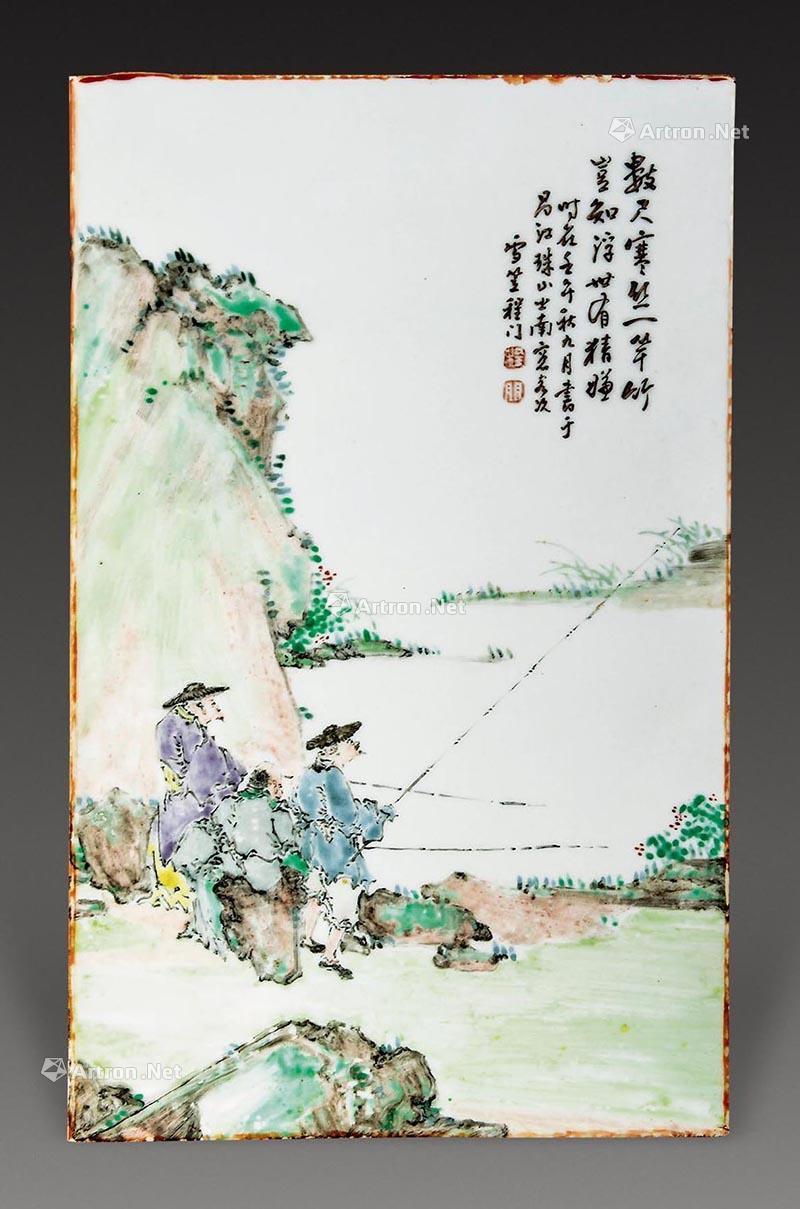 數尺寒絲一竿竹
豈知浮世有猜嫌
時在壬午秋九月書于
昌江珠山之南窓客次
雪笠程門
程
門
Artron.Net
Artron.Net
Artron.Net